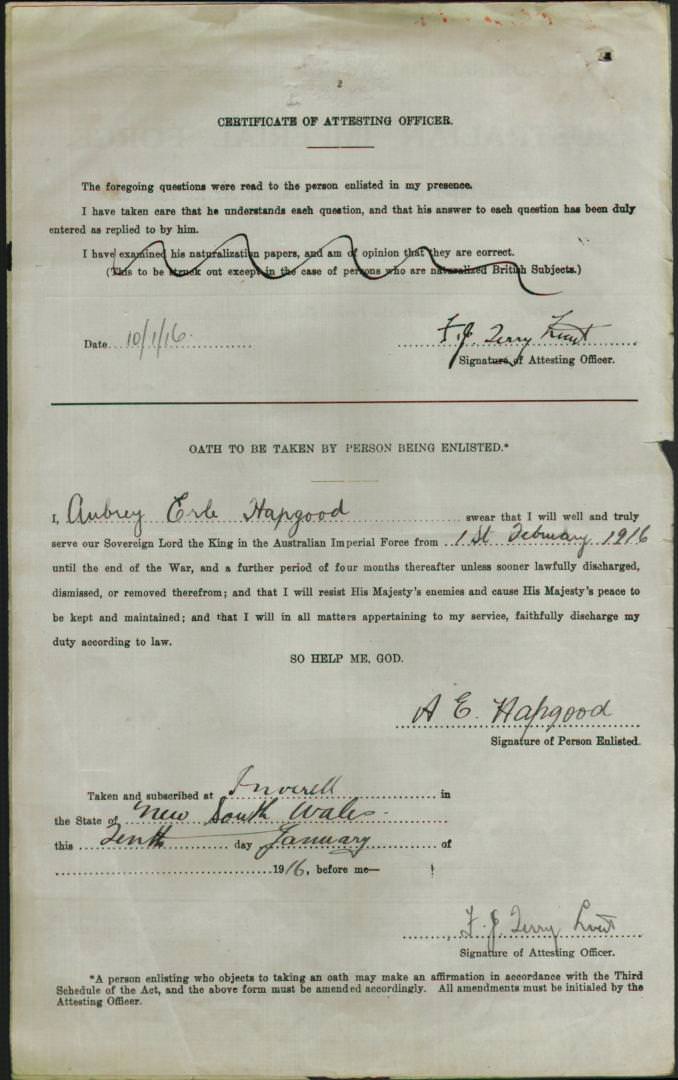 2
CERTIFICATE OF ATTESTING OFFICER.
The foregoing questions were read to the person enlisted in my presence.
I have taken care that he understands each question, and that his answer to each question has been duly
entered as replied to by him.
I have examined his naturalization papers, and am of opinion that they are correct.
(This to be struck out except in the case of persons who are naturalized British Subjects.)
Date 10/1/16.
F. J. Terry Lieut
Signature of Attesting Officer.
OATH TO BE TAKEN BY PERSON BEING ENLISTED.*
I, Aubrey Erle Hapgood swear that I will well and truly
serve our Sovereign Lord the King in the Australian Imperial Force from 1st February 1916
until the end of the War, and a further period of four months thereafter unless sooner lawfully discharged,
dismissed, or removed therefrom; and that I will resist His Majesty's enemies and cause His Majesty's peace to
be kept and maintained; and that I will in all matters appertaining to my service, faithfully discharge my
duty according to law.
SO HELP ME, GOD.
A E. Hapgood
Signature of Person Enlisted.
Taken and subscribed at Inverell in
the State of New South Wales
this Tenth day January of
1916, before me—
F. J. Terry Lieut
Signature of Attesting Officer.
*A person enlisting who objects to taking an oath may make an affirmation in accordance with the Third
Schedule of the Act, and the above form must be amended accordingly. All amendments must be initialed by the
Attesting Officer.